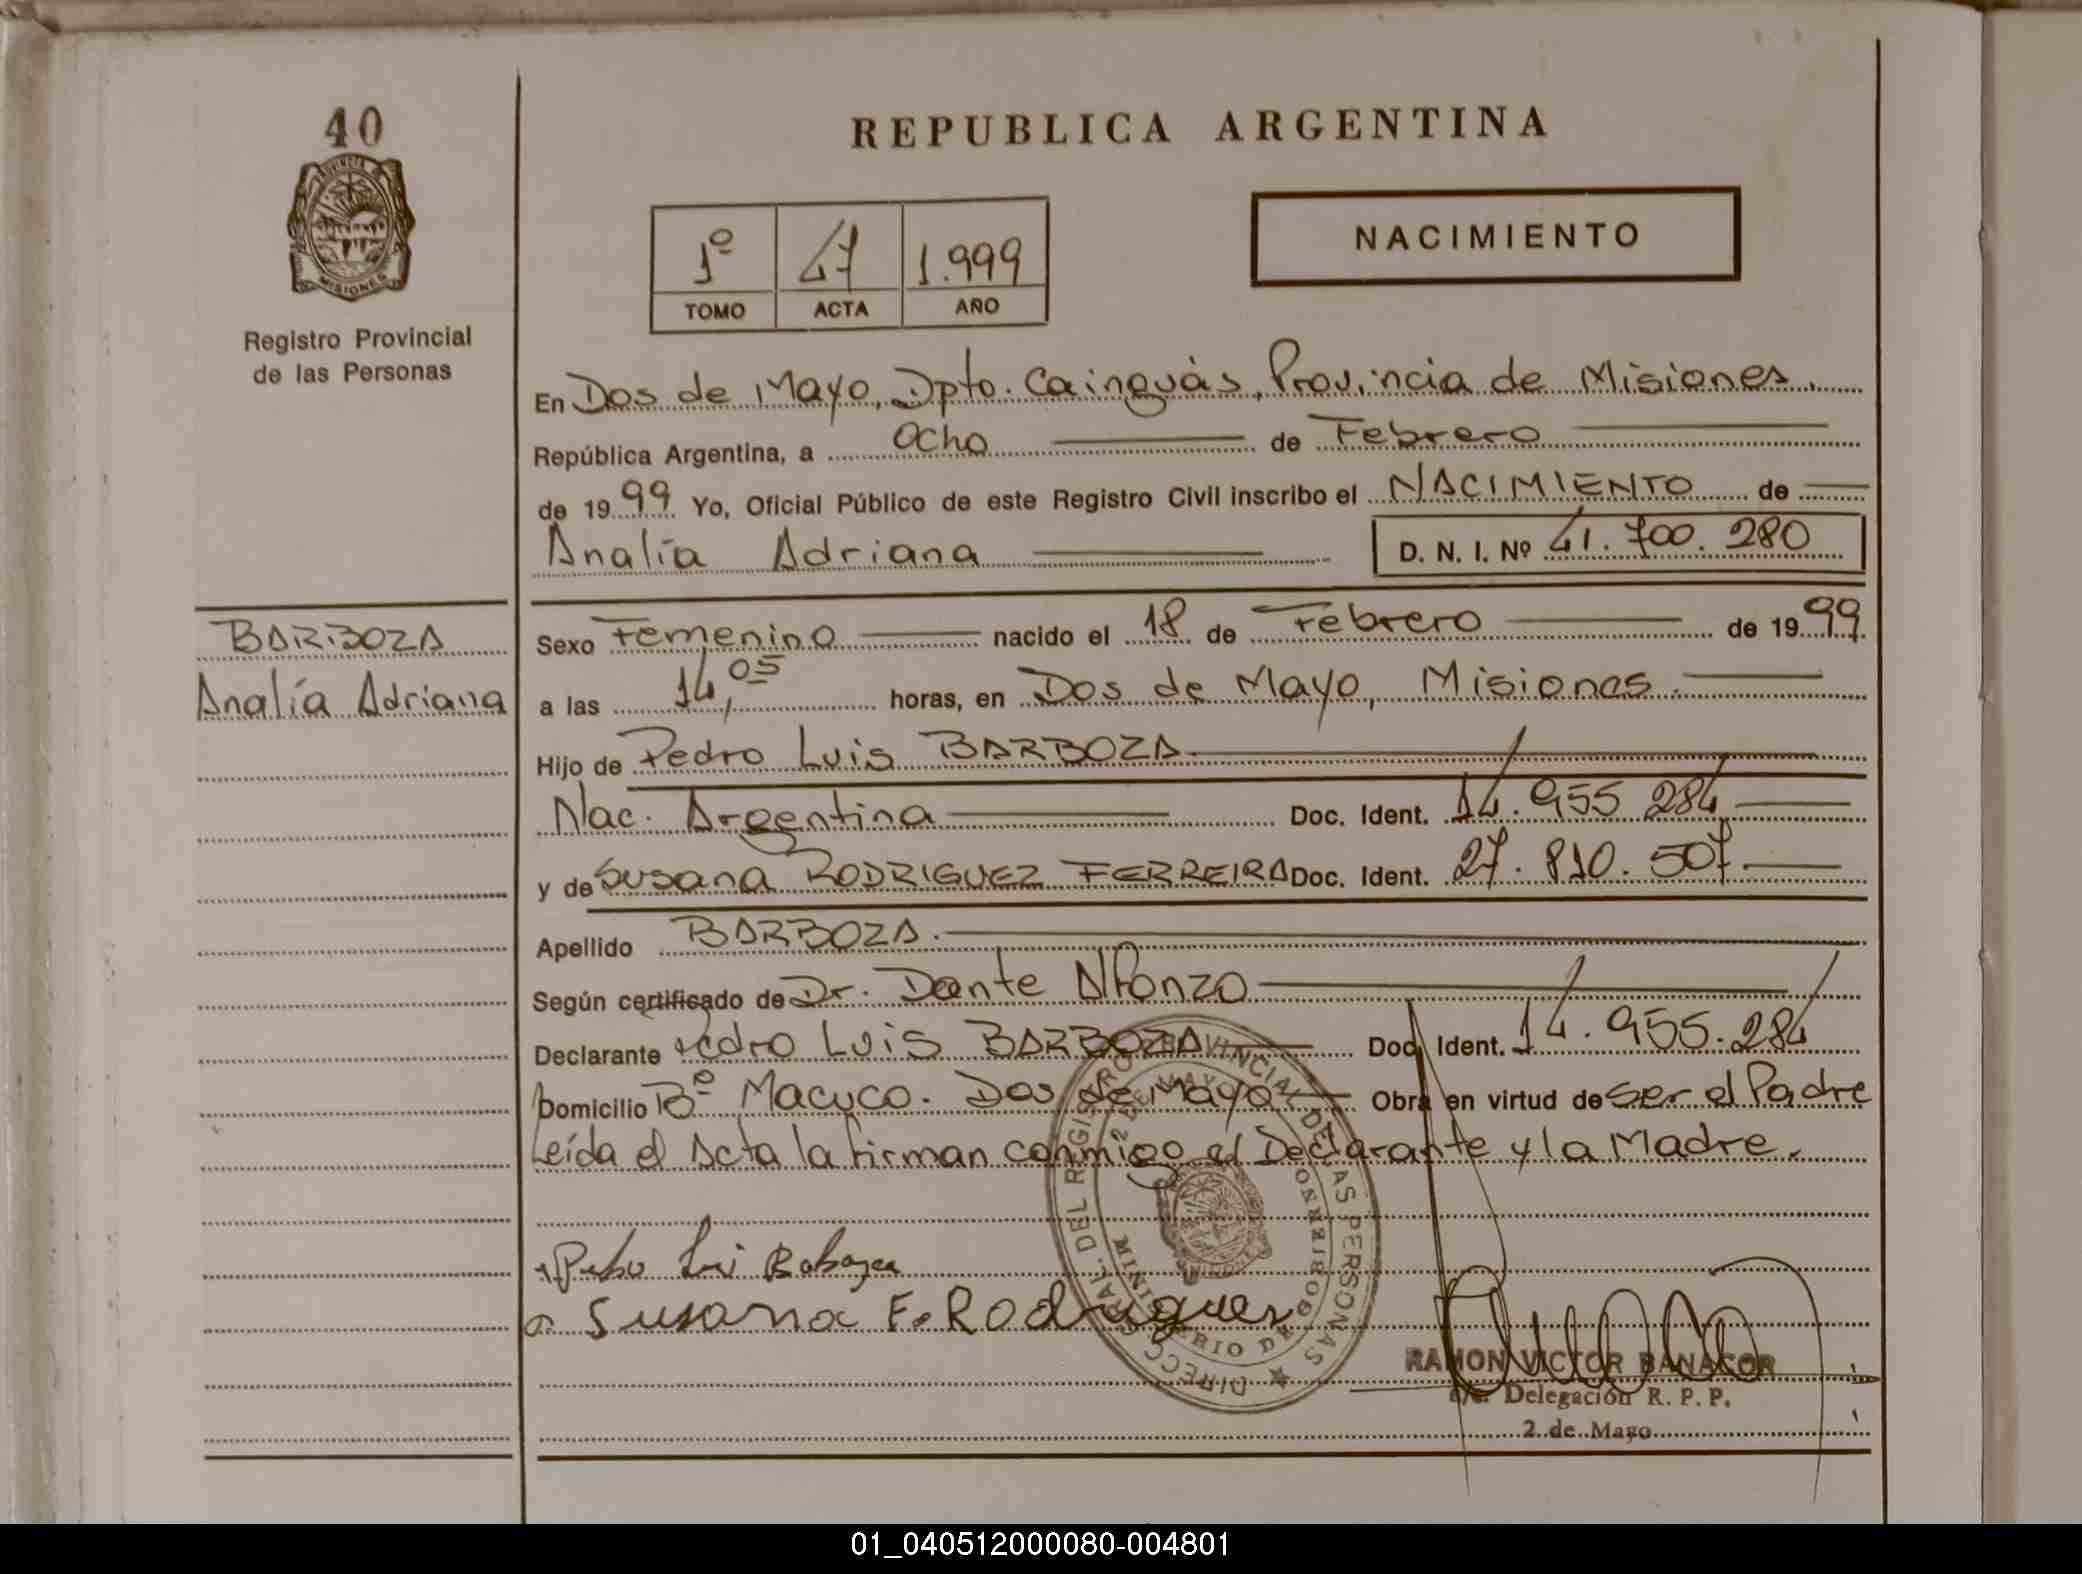 40
PROVINCIA
MISIONES
Registro Provincial
de las Personas
REPUBLICA ARGENTINA
1º 47 1.999
TOMO ACTA AÑO
NACIMIENTO
En Dos de Mayo, Dpto. Cainguás, Provincia de Misiones.
República Argentina, a Ocho de Febrero
de 1999 Yo, Oficial Público de este Registro Civil inscribo el NACIMIENTO de
Analía Adriana D. N. I. Nº 41.700.280
BARBOZA
Analía Adriana
Sexo Femenino nacido el 18 de Febrero de 1999
a las 14,05 horas, en Dos de Mayo, Misiones.
Hijo de Pedro Luis BARBOZA
Nac. Argentina Doc. Ident. 14.955.284
y de Susana RODRIGUEZ FERREIRA Doc. Ident. 27.810.507
Apellido BARBOZA.
Según certificado de Dr. Dante Alfonzo
Declarante Pedro Luis BARBOZA Doc. Ident. 14.955.284
Domicilio Bº Macuco. Dos de Mayo Obra en virtud de ser el Padre
Leída el Acta la firman conmigo el Declarante y la Madre.
DIRECC. GRAL. DEL REGISTRO PROVINCIAL DE LAS PERSONAS
2 DE MAYO
MINISTERIO DE GOBIERNO
Susana F. Rodrigues
RAMON VICTOR BANACOR
Delegación R. P. P.
2 de Mayo
01_040512000080-004801